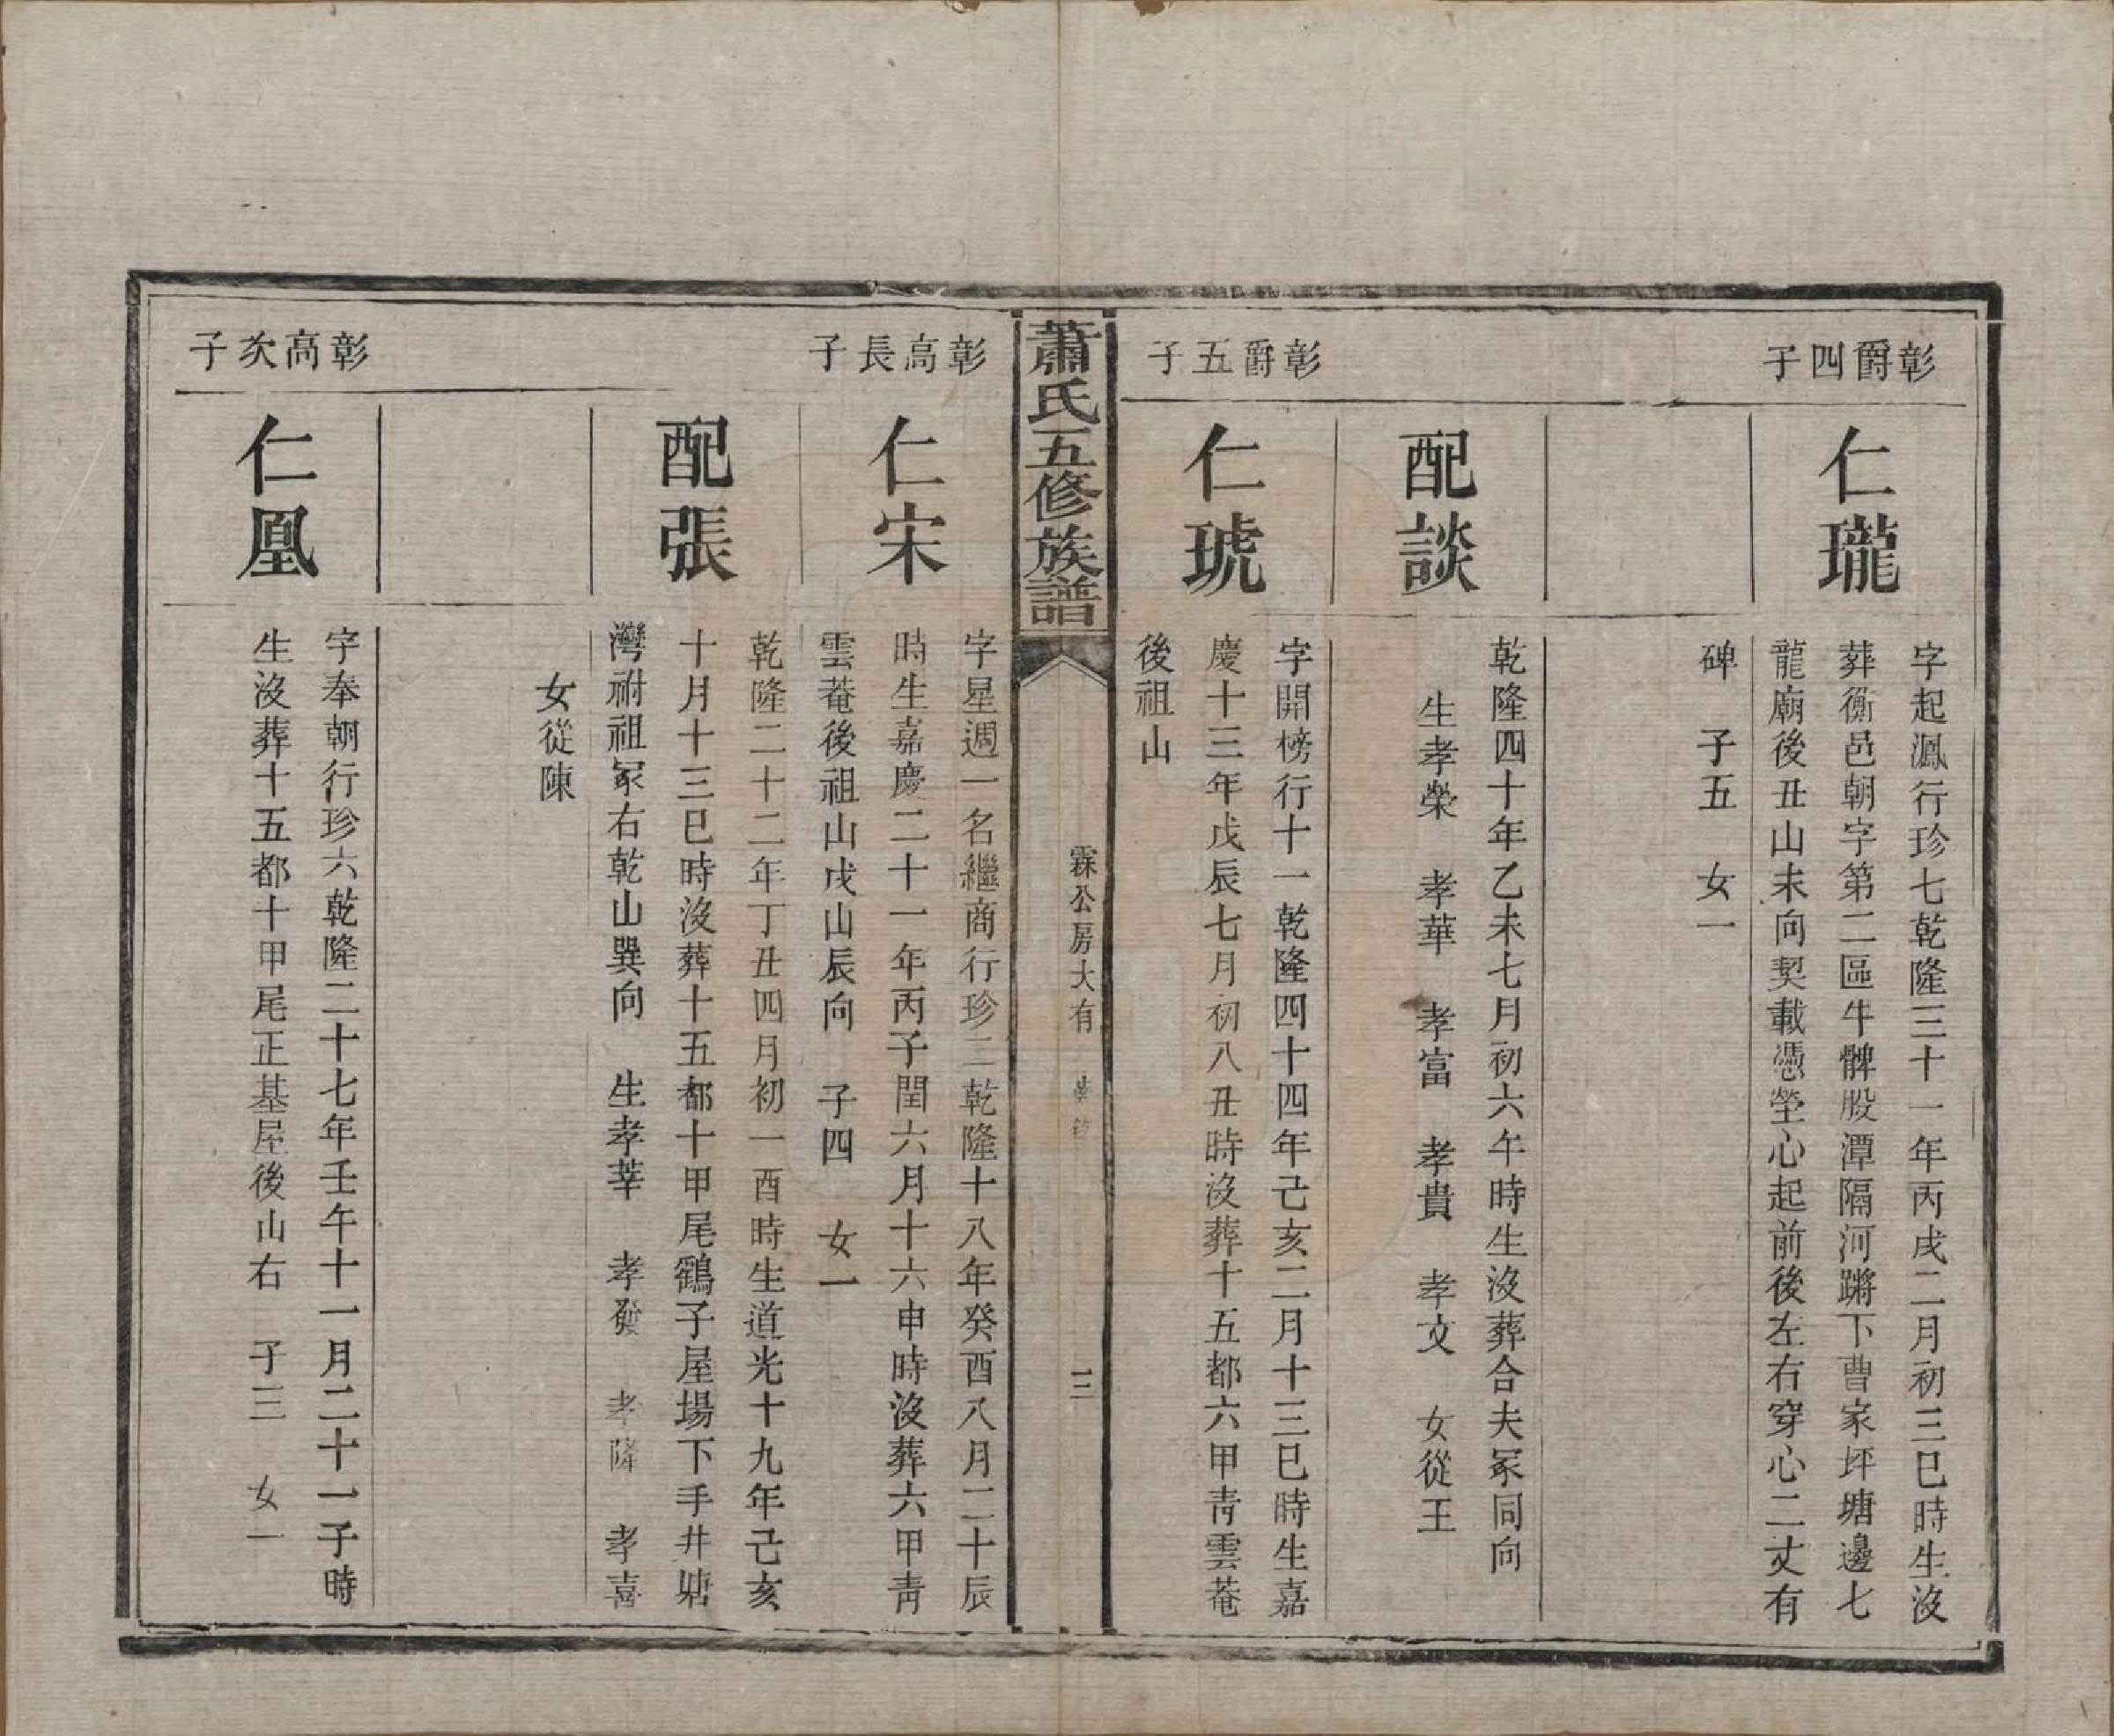 彰爵四子
仁瓏
字起鳳行珍七乾隆三十一年丙戌二月初三巳時生沒
葬衡邑朝字第二區牛髀股潭隔河蹡下曹家坪塘邊七
龍廟後丑山未向契載憑塋心起前後左右穿心二丈有
碑 子五 女一
配談
乾隆四十年乙未七月初六午時生沒葬合夫冢同向
生孝榮 孝華 孝富 孝貴 孝文 女從王
彰爵五子
仁琥
字開榜行十一乾隆四十四年己亥二月十三巳時生嘉
慶十三年戊辰七月初八丑時沒葬十五都六甲靑雲菴
後祖山
蕭氏五修族譜
霖公房大有
三
彰高長子
仁宋
字星週一名繼商行珍二乾隆十八年癸酉八月二十辰
時生嘉慶二十一年丙子閏六月十六申時沒葬六甲靑
雲菴後祖山戌山辰向 子四 女一
配張
乾隆二十二年丁丑四月初一酉時生道光十九年己亥
十月十三巳時沒葬十五都十甲尾鶴子屋場下手井塘
灣祔祖冢右乾山巽向 生孝莘 孝發 孝降 孝喜
女從陳
彰高次子
仁凰
字奉朝行珍六乾隆二十七年壬午十一月二十一子時
生沒葬十五都十甲尾正基屋後山右 子三 女一